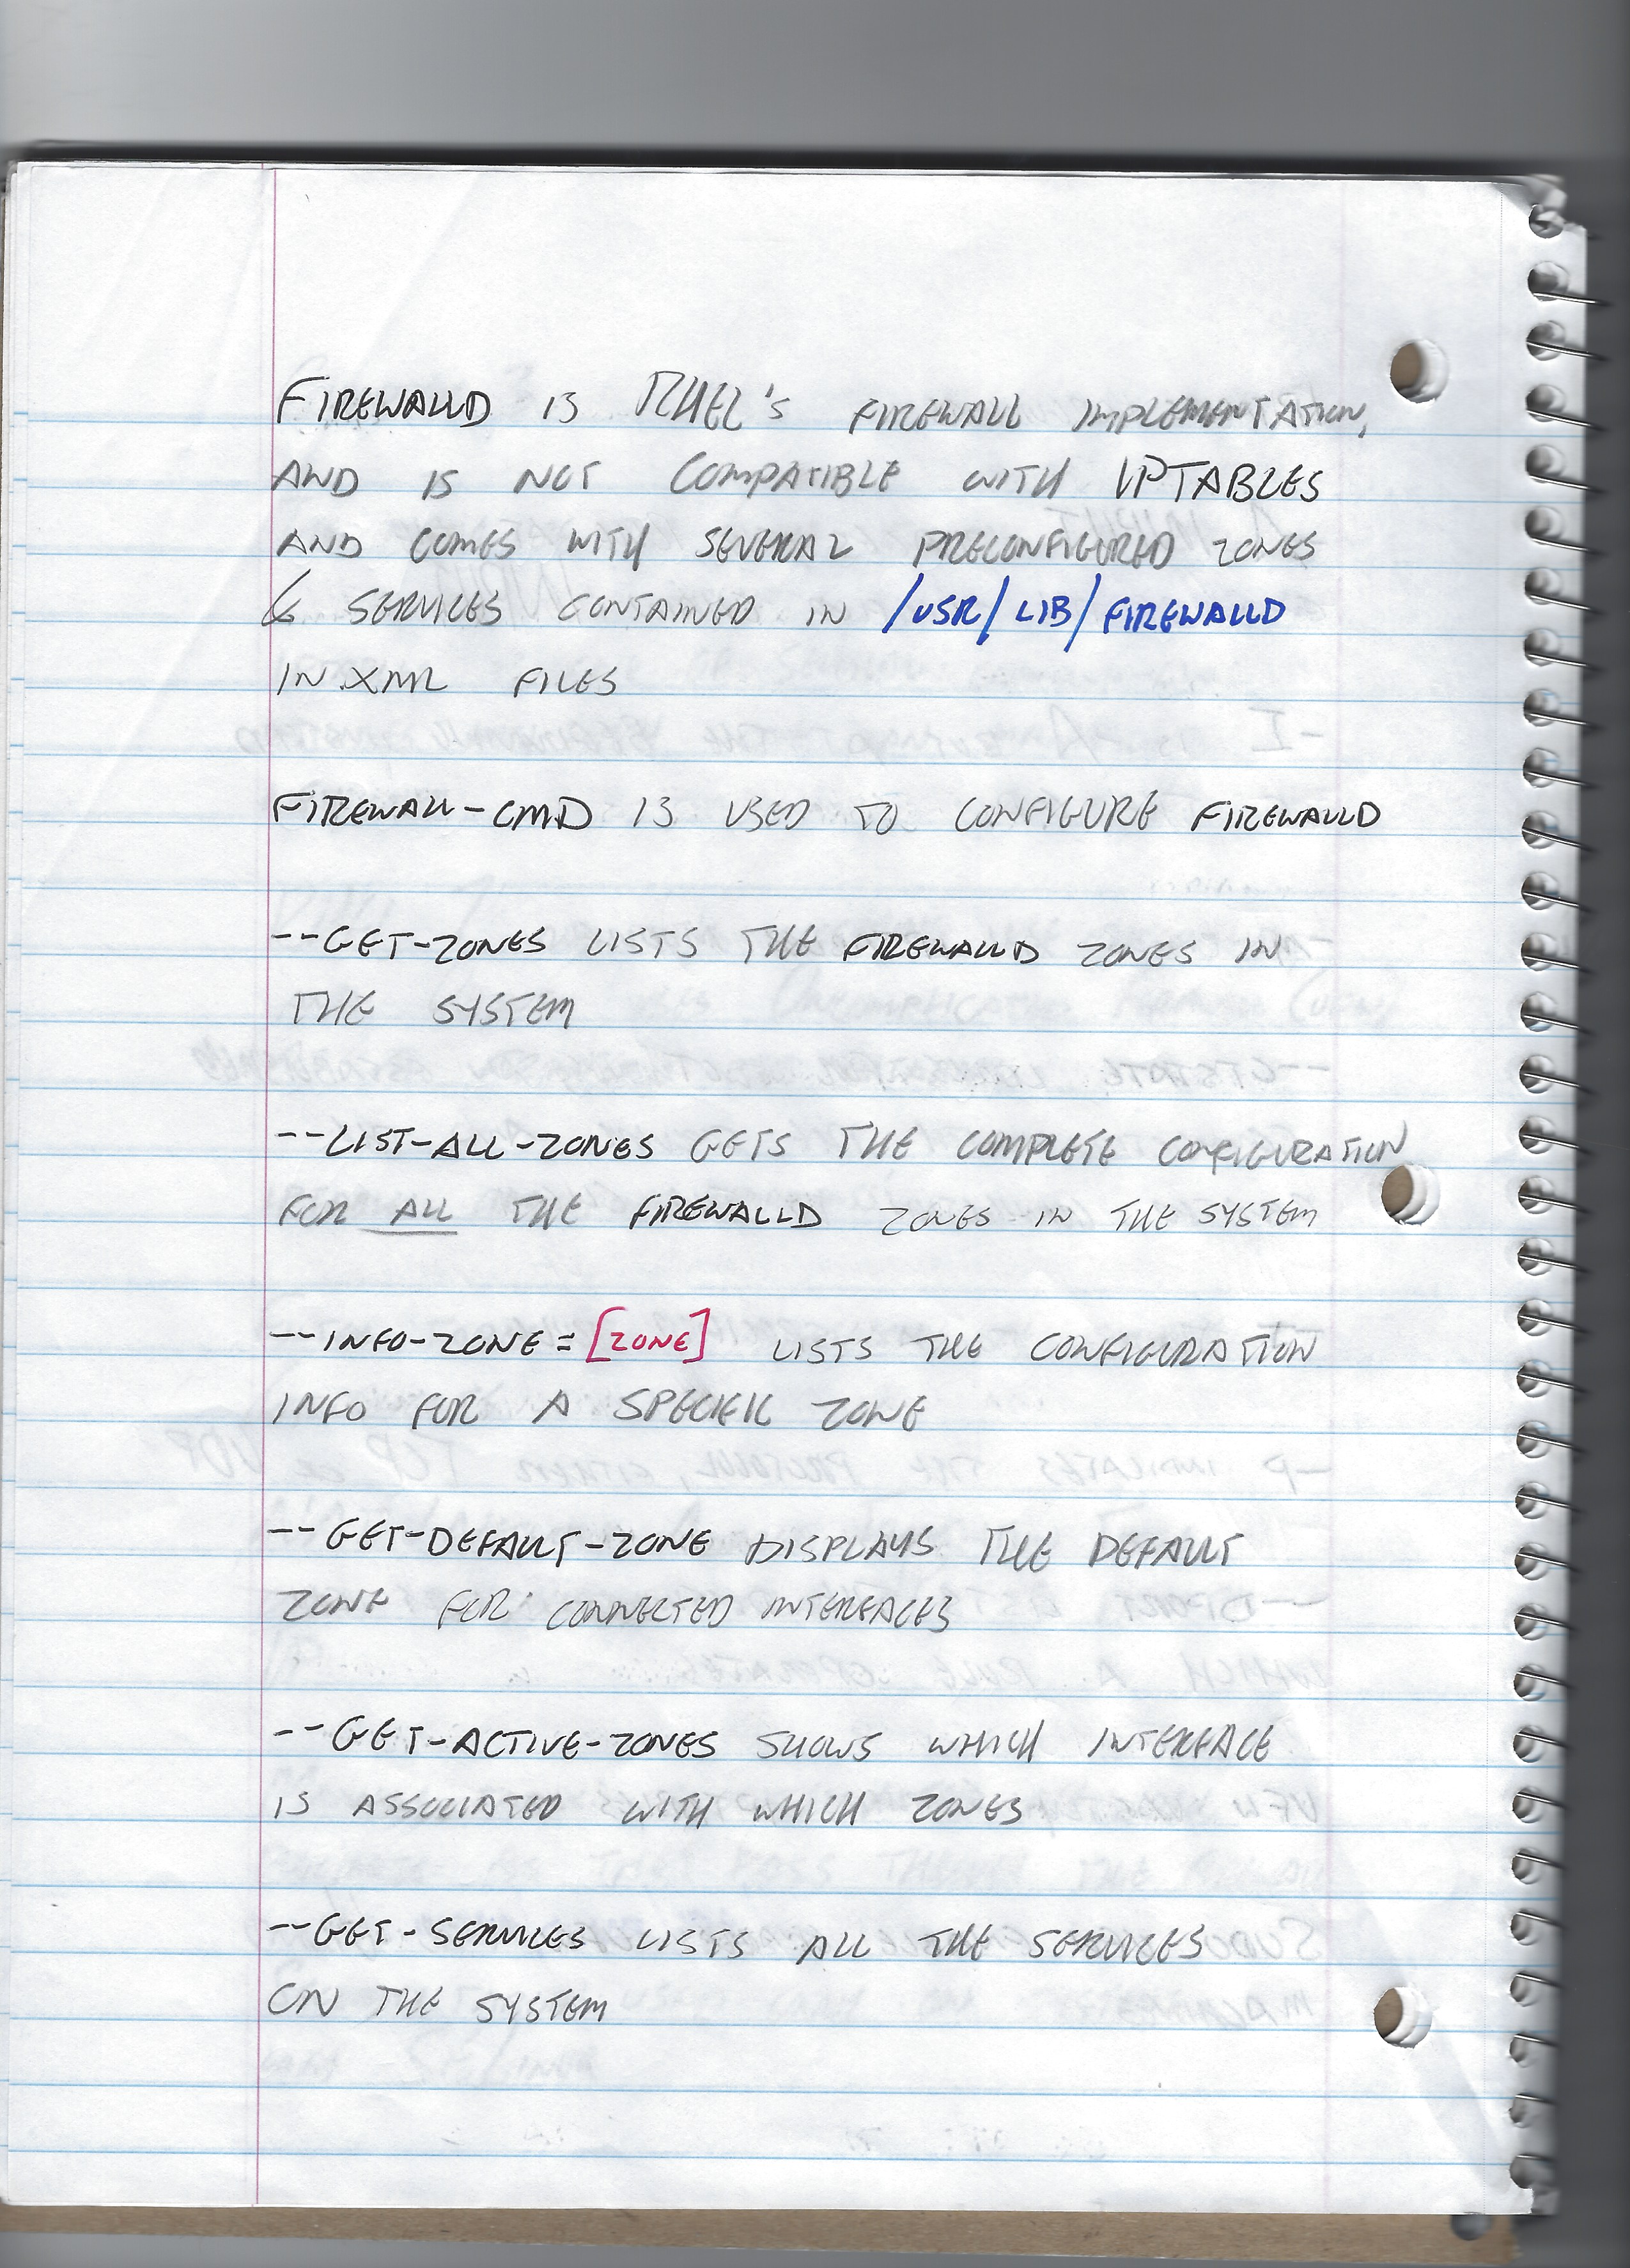 FIREWALLD IS RHEL'S FIREWALL IMPLEMENTATION,
AND IS NOT COMPATIBLE WITH IPTABLES
AND COMES WITH SEVERAL PRECONFIGURED ZONES
& SERVICES CONTAINED IN /USR/LIB/FIREWALLD
IN .XML FILES
FIREWALL-CMD IS USED TO CONFIGURE FIREWALLD
--GET-ZONES LISTS THE FIREWALLD ZONES IN
THE SYSTEM
--LIST-ALL-ZONES GETS THE COMPLETE CONFIGURATION
FOR ALL THE FIREWALLD ZONES IN THE SYSTEM
--INFO-ZONE=[ZONE] LISTS THE CONFIGURATION
INFO FOR A SPECIFIC ZONE
--GET-DEFAULT-ZONE DISPLAYS THE DEFAULT
ZONE FOR CONNECTED INTERFACES
--GET-ACTIVE-ZONES SHOWS WHICH INTERFACE
IS ASSOCIATED WITH WHICH ZONES
--GET-SERVICES LISTS ALL THE SERVICES
ON THE SYSTEM